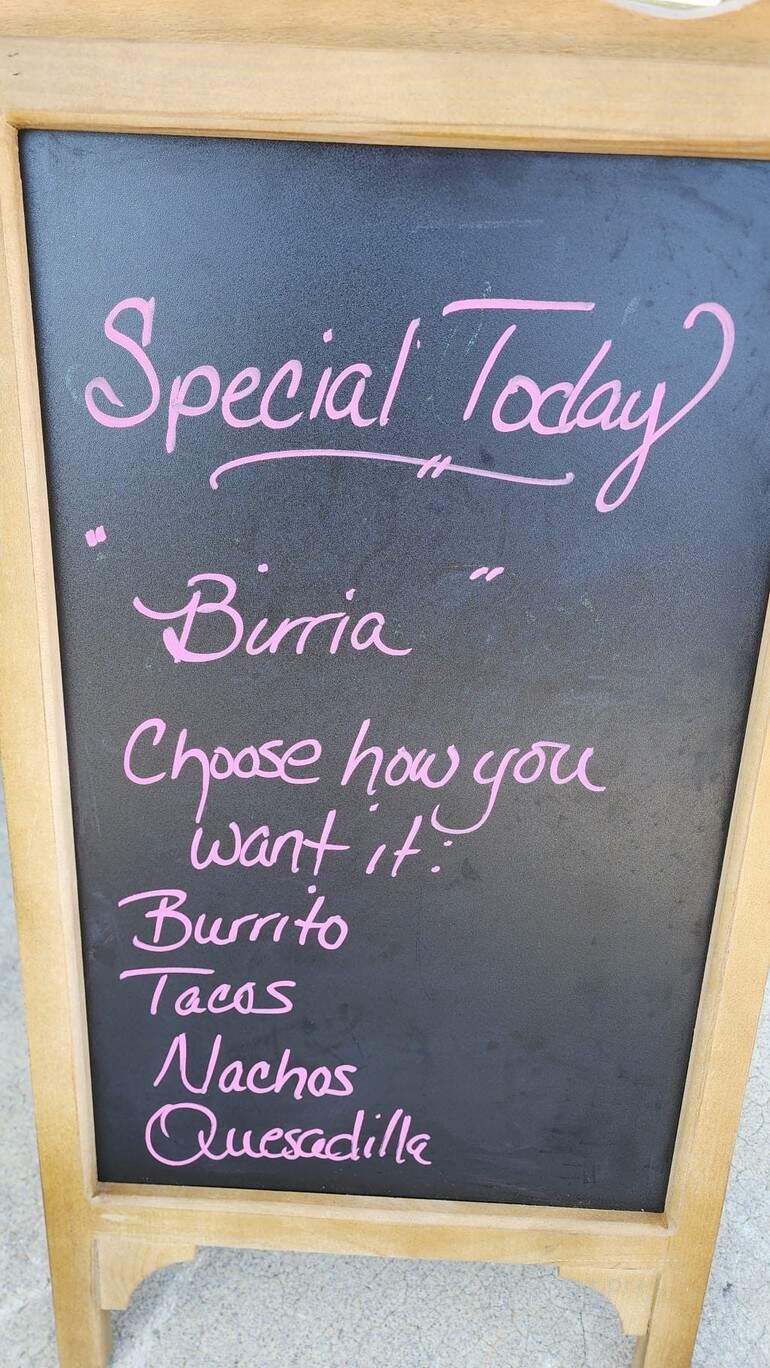 Special Today
"Birria"
Choose how you
want it:
Burrito
Tacos
Nachos
Quesadilla